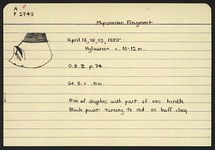 A
P 2743
Mycenaean Fragment
April 16, 18, 19, 1932
- 10-12 m.
O.B. II p. 74
H. 0. .11 m.
Rim of skyphos with part of one handle
Black paint turning to red on buff clay